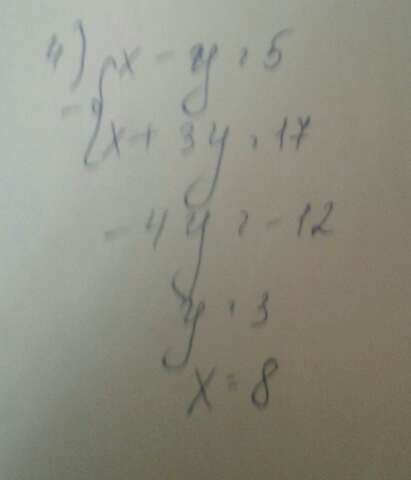 4) x - y = 5
- { x + 3y = 17
-4y = -12
y = 3
x = 8